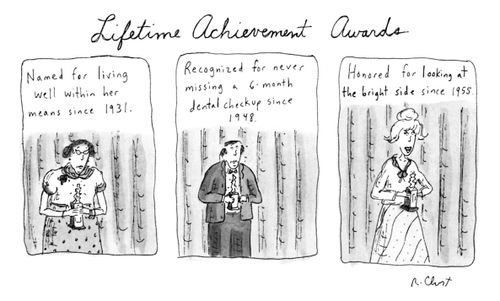 Lifetime Achievement Awards
Named for living
well within her
means since 1931.
Recognized for never
missing a 6-month
dental checkup since
1948.
Honored for looking at
the bright side since 1955.
R. Chst